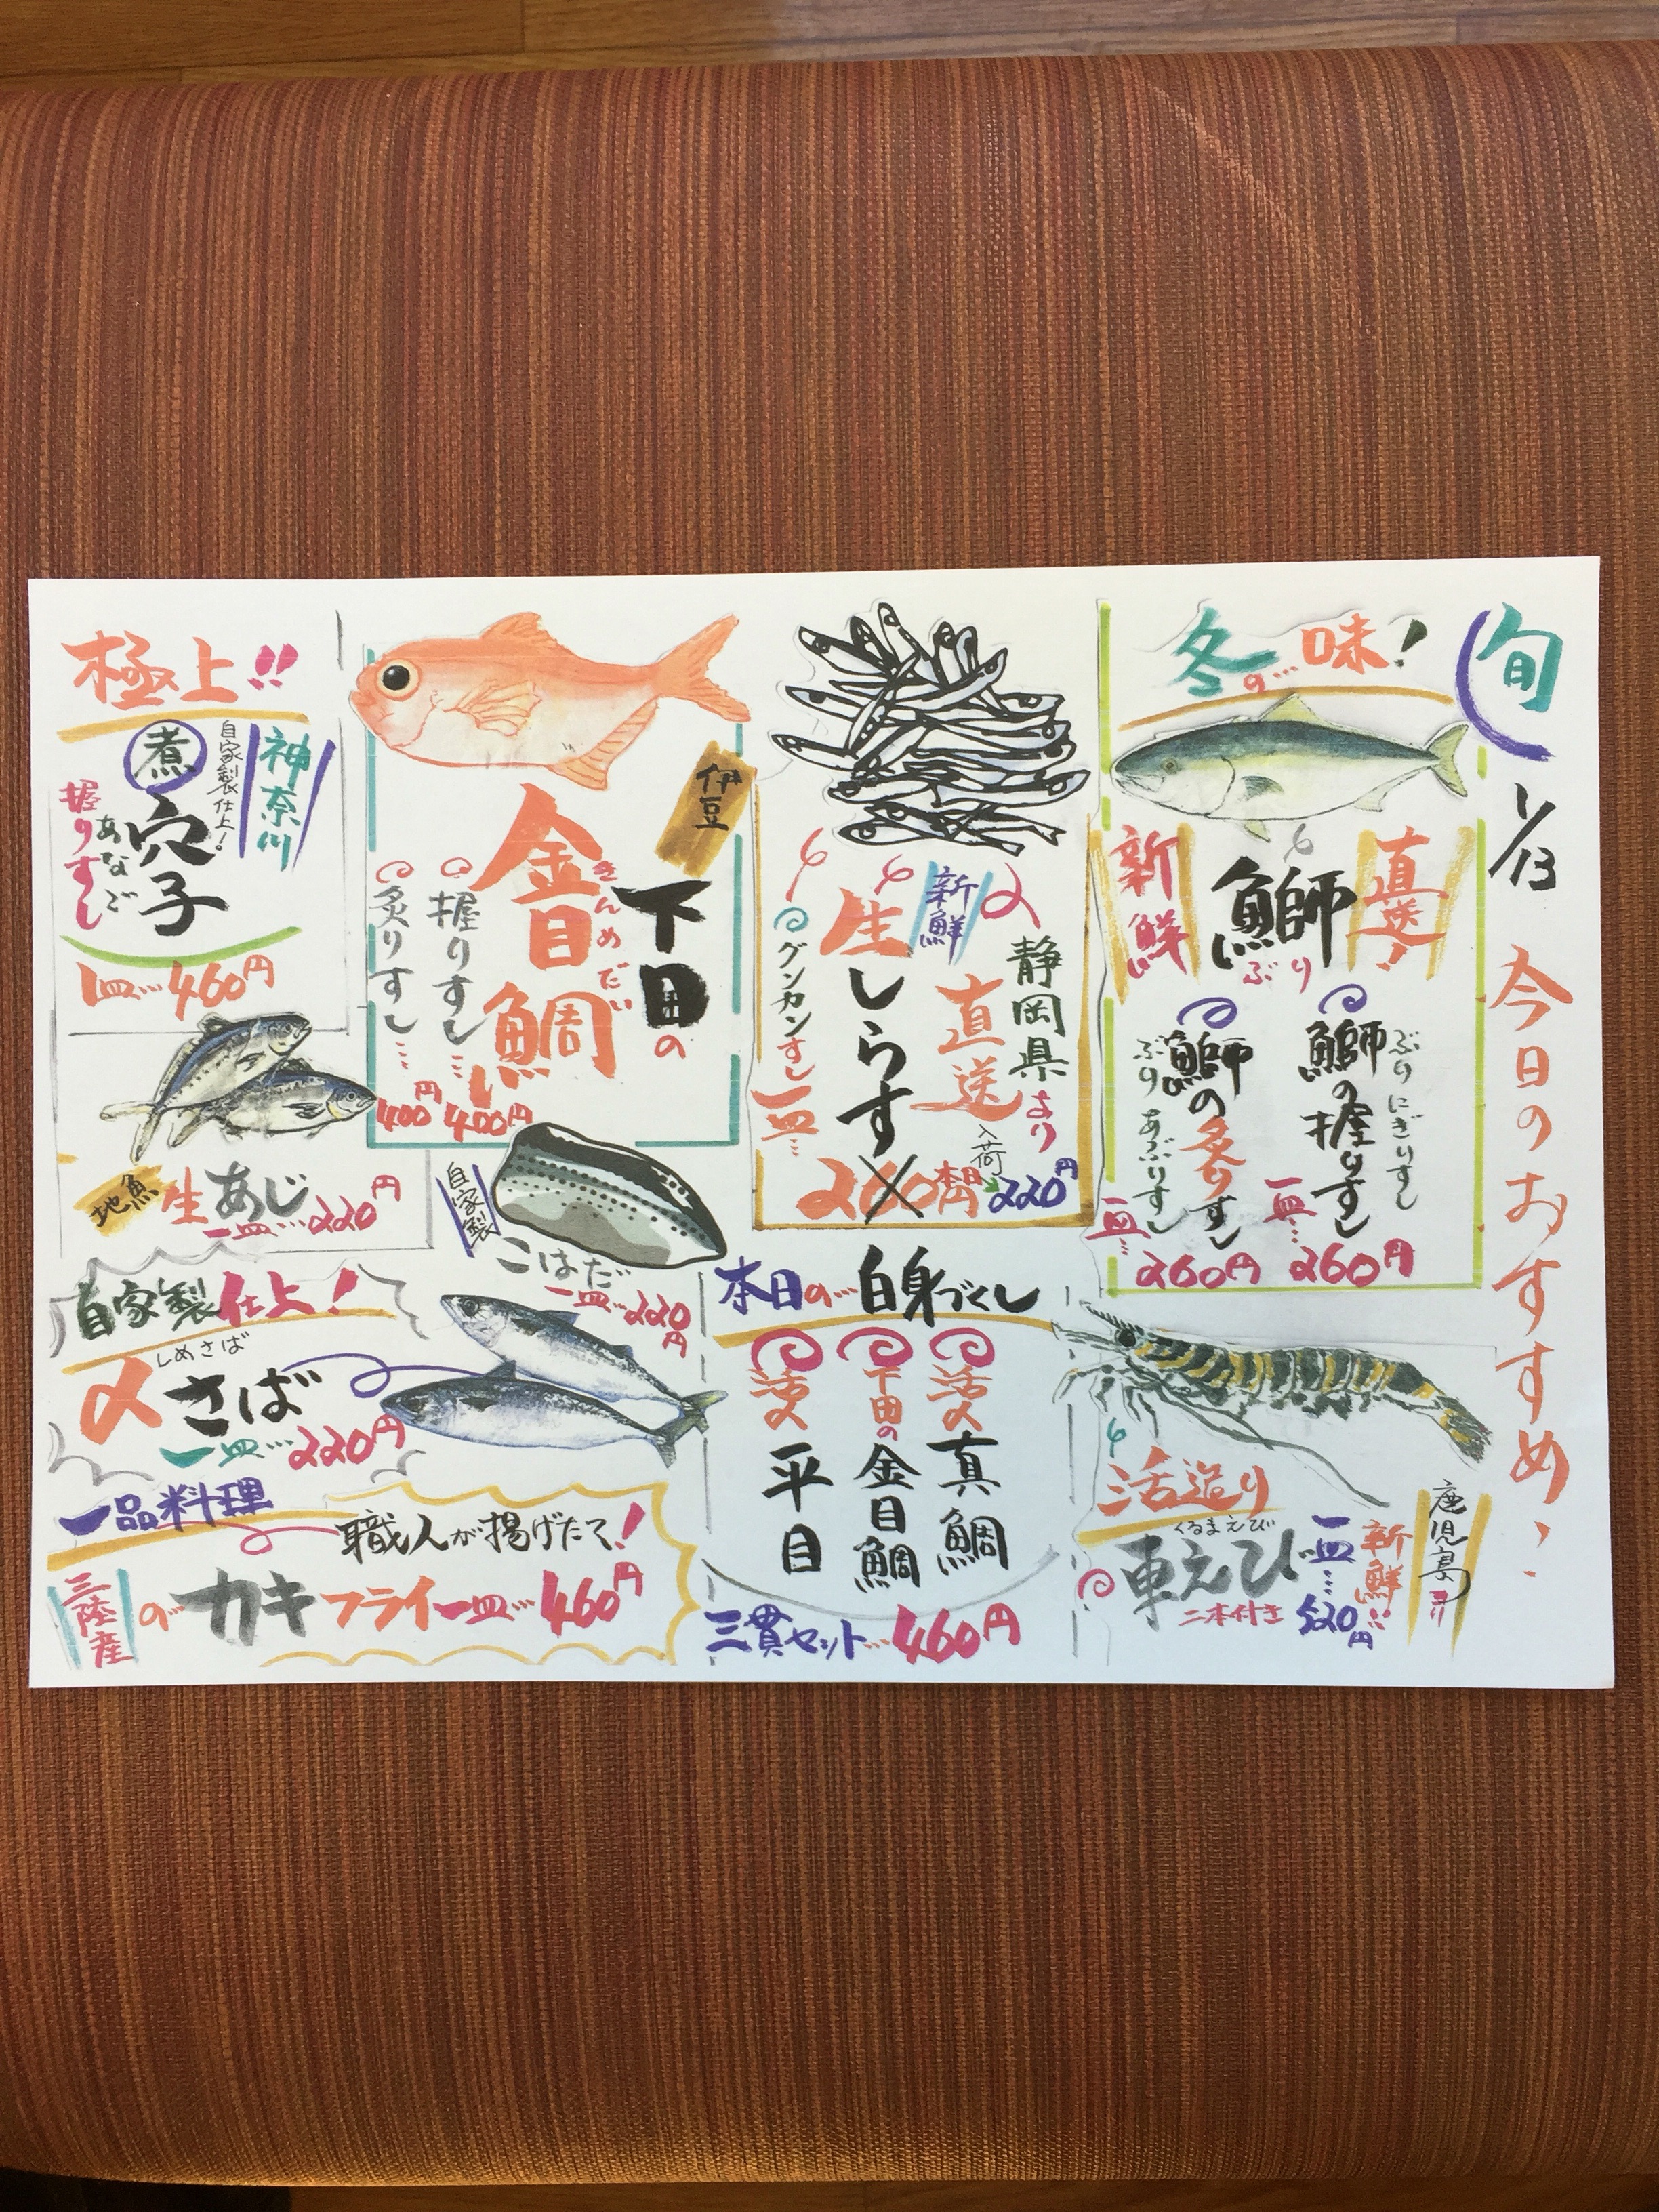 旬
1/13
今日のおすすめ
冬の…味!
直送!
鰤
ぶり
新鮮
ぶりにぎりすし
鰤の握りすし
一皿…
260円
鰤の炙りすし
ぶりあぶりすし
一皿…
260円
静岡県より
直送
入荷
新鮮
生しらす
グンカンすし
一皿…
260円
220円
伊豆
下田の
金目鯛
きんめだい
握りすし…
400円
炙りすし…
400円
極上!!
神奈川
自家製仕上!
煮穴子
あなご
握りすし
一皿…460円
地魚
生あじ
一皿…220円
自家製
こはだ
一皿…220円
自家製仕上!
しめさば
〆さば
一皿…220円
本日の…白身づくし
活〆真鯛
下田の金目鯛
活〆平目
三貫セット…460円
活造り
くるまえび
車えび
二本付き
一皿…520円
新鮮!!
鹿児島より
一品料理
職人が揚げたて!
三陸産のカキフライ一皿…460円